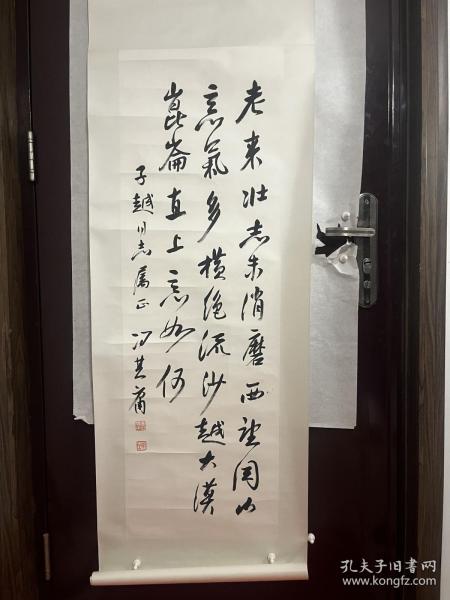 老来壮志未消磨西望関山
意气多横绝流沙越大漠
崑崙直上意如何
子越同志属正 冯其庸
孔夫子旧书网
www.kongfz.com